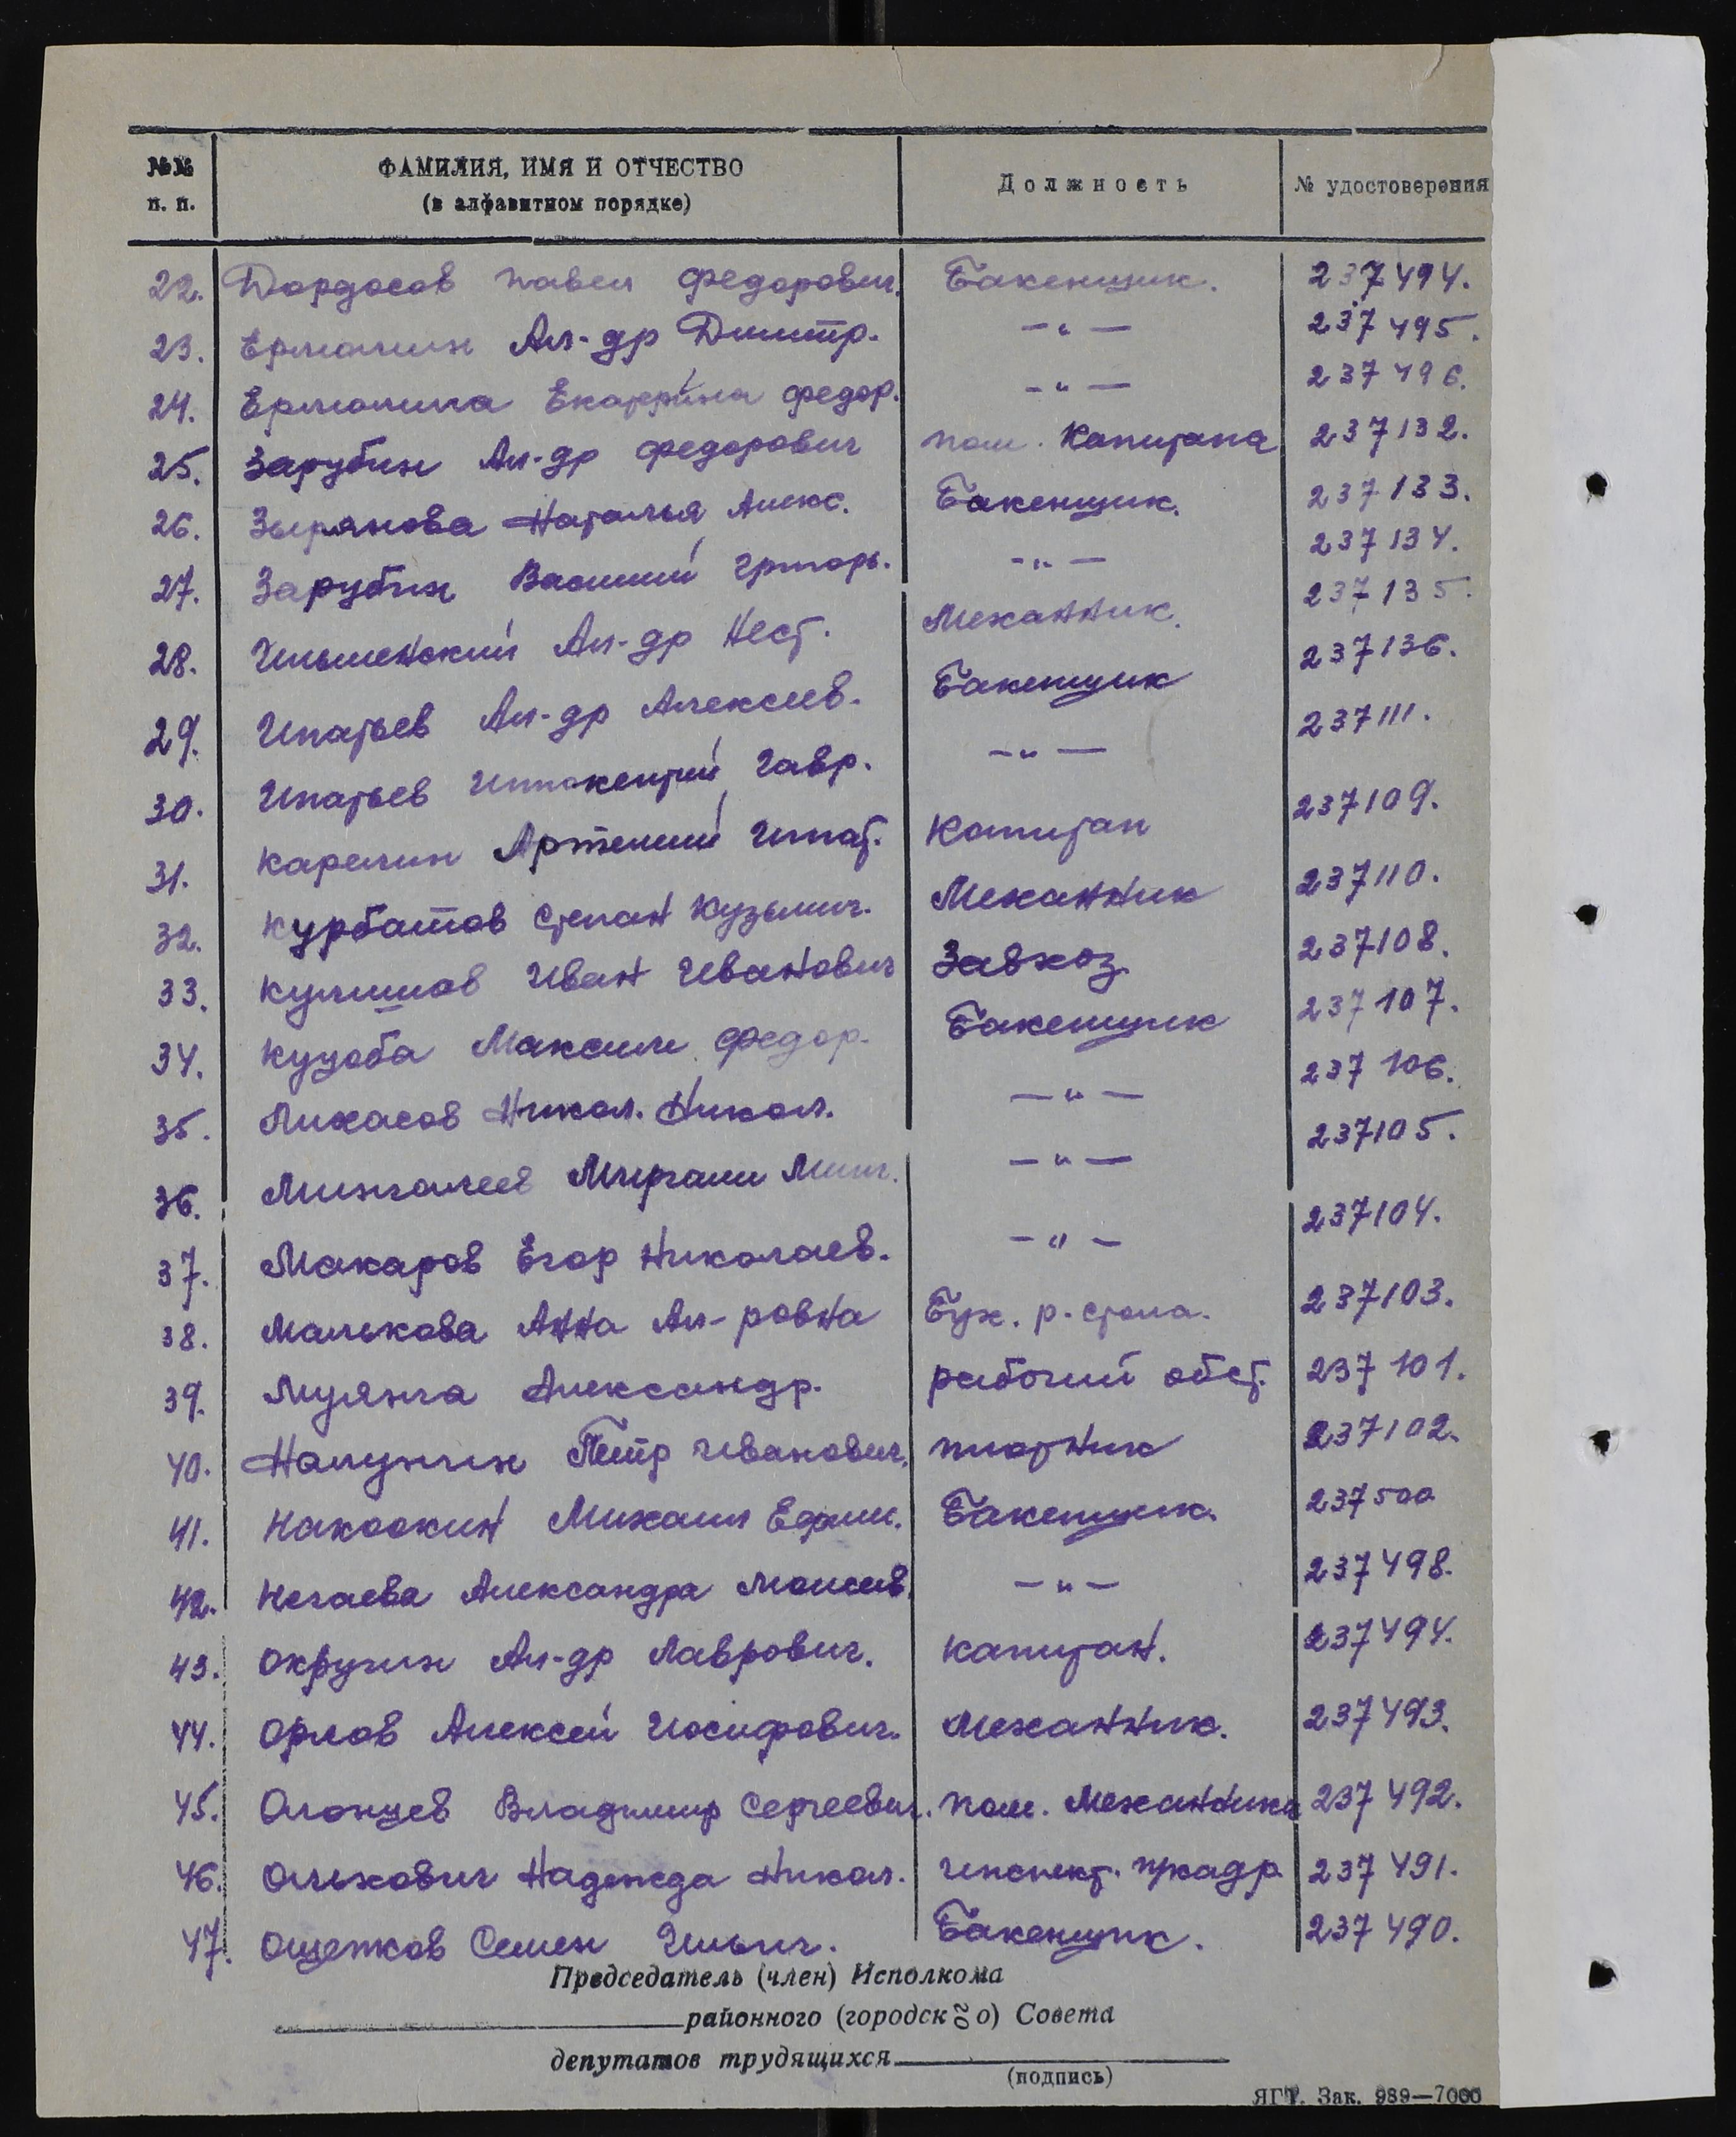 №№ п. п. ФАМИЛИЯ, ИМЯ И ОТЧЕСТВО (в алфавитном порядке) Должность № удостоверения
22. Дордосов Павел Федорович. Бакенщик. 237494.
23. Ермолин Ал-др Димитр. —"— 237495.
24. Ермолина Екатерина Федор. —"— 237496.
25. Зарубин Ал-др Федорович пом. Капитана 237132.
26. Зырянова Наталья Алекс. Бакенщик. 237133.
27. Зарубин Василий Григорь. —"— 237134.
28. Ал-др Нест. Механник. 237135.
29. Ипатьев Ал-др Алексеев. Бакенщик 237136.
30. Ипатьев Инокентий Гавр. —"— 237111.
31. Карелин Артемий Игнат. Капитан 237109.
32. Курбатов Степан Кузьмич. Механник 237110.
33. Иван Иванович Завхоз 237108.
34. Куцоба Максим Федор. Бакенщик 237107.
35. Лихасов Никол. Никол. —"— 237106.
36. Мингалеев —"— 237105.
37. Макаров Егор Николаев. —"— 237104.
38. Малькова Анна Ал-ровна Бух. р. стола. 237103.
39. Мулянга Александр. рабочий обст. 237101.
40. Петр Иванович. плотник 237102.
41. Накоокин Михаил Ефим. Бакенщик. 237500
42. Нечаева Александра Моисеев. —"— 237498.
43. Округин Ал-др Лаврович. Капитан. 237494.
44. Орлов Алексей Иосифович. Механник. 237493.
45. Олонцев Владимир Сергеевич. пом. Механника 237492.
46. Ольхович Надежда Никол. Инспект. 237491.
47. Ощепков Семен Ильич. Бакенщик. 237490.
Председатель (член) Исполкома
районного (городского) Совета
депутатов трудящихся
(подпись)
ЯГТ. Зак. 989—7000